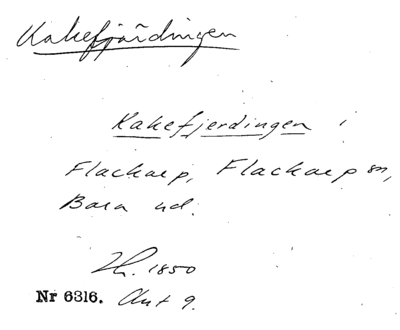 Kakefjärdingen
Kakefjerdingen i
Flackarp, Flackarp sn,
Bara hd.
1850
Nr 6316. Ant 9.